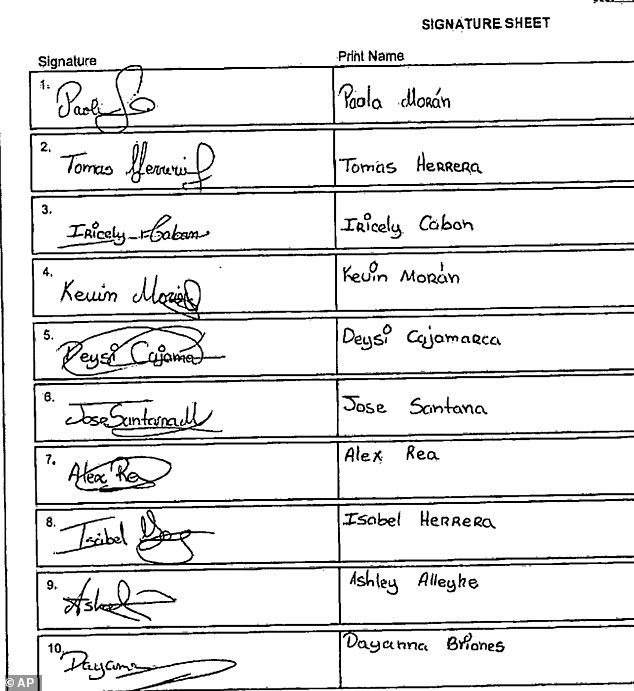 SIGNATURE SHEET
Signature Print Name
1. Paola Morán
2. Tomas Herrera Tomas HERRERA
3. Iricely Caban Iricely Caban
4. Kevin Kevin MORÁN
5. Deysi Cajama Deysi CajamaRca
6. Jose Santana M Jose Santana
7. Alex Rea Alex Rea
8. Isabel Isabel HERRERA
9. Ashley Alleyne
10. Dayanna Dayanna Briones
© AP